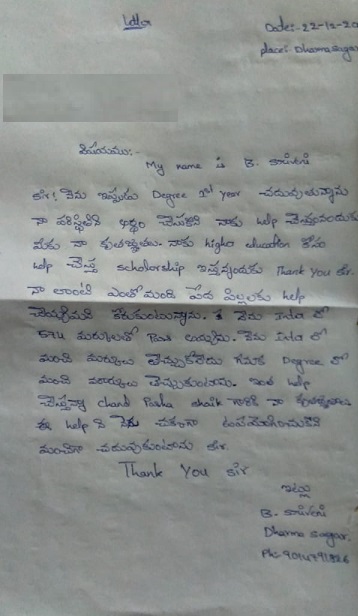 Letter
Date:- 22-12-20
place:- Dharmasagar
విషయము:-
My name is B. కావేరి
sir! నేను ఇప్పుడు Degree 1st year చదువుతున్నాను
నా పరిస్థితిని అర్థం చేసుకొని నాకు help చేస్తున్నందుకు
మీకు నా కృతజ్ఞతలు. నాకు higher education కోసం
help చేస్తూ scholorship ఇస్తున్నందుకు Thank you sir.
నా లాంటి ఎంతోమంది పేద పిల్లలకు help
చేయ్యాలని కోరుకుంటున్నాను. నేను Inter లో
574 మార్కులతో Pass అయ్యాను. నేను Inter లో
మంచి మార్కులు తెచ్చుకోలేదు Degree లో
మంచి మార్కులు తెచ్చుకుంటాను. ఇంత help
చేస్తున్న Chand Pasha shaik గారికి నా కృతజ్ఞతలు
ఈ help ని నేను చక్కగా ఉపయోగించుకొని
మంచిగా చదువుకుంటాను sir.
Thank You sir
ఇట్లు
B. కావేరి
Dharma sagar.